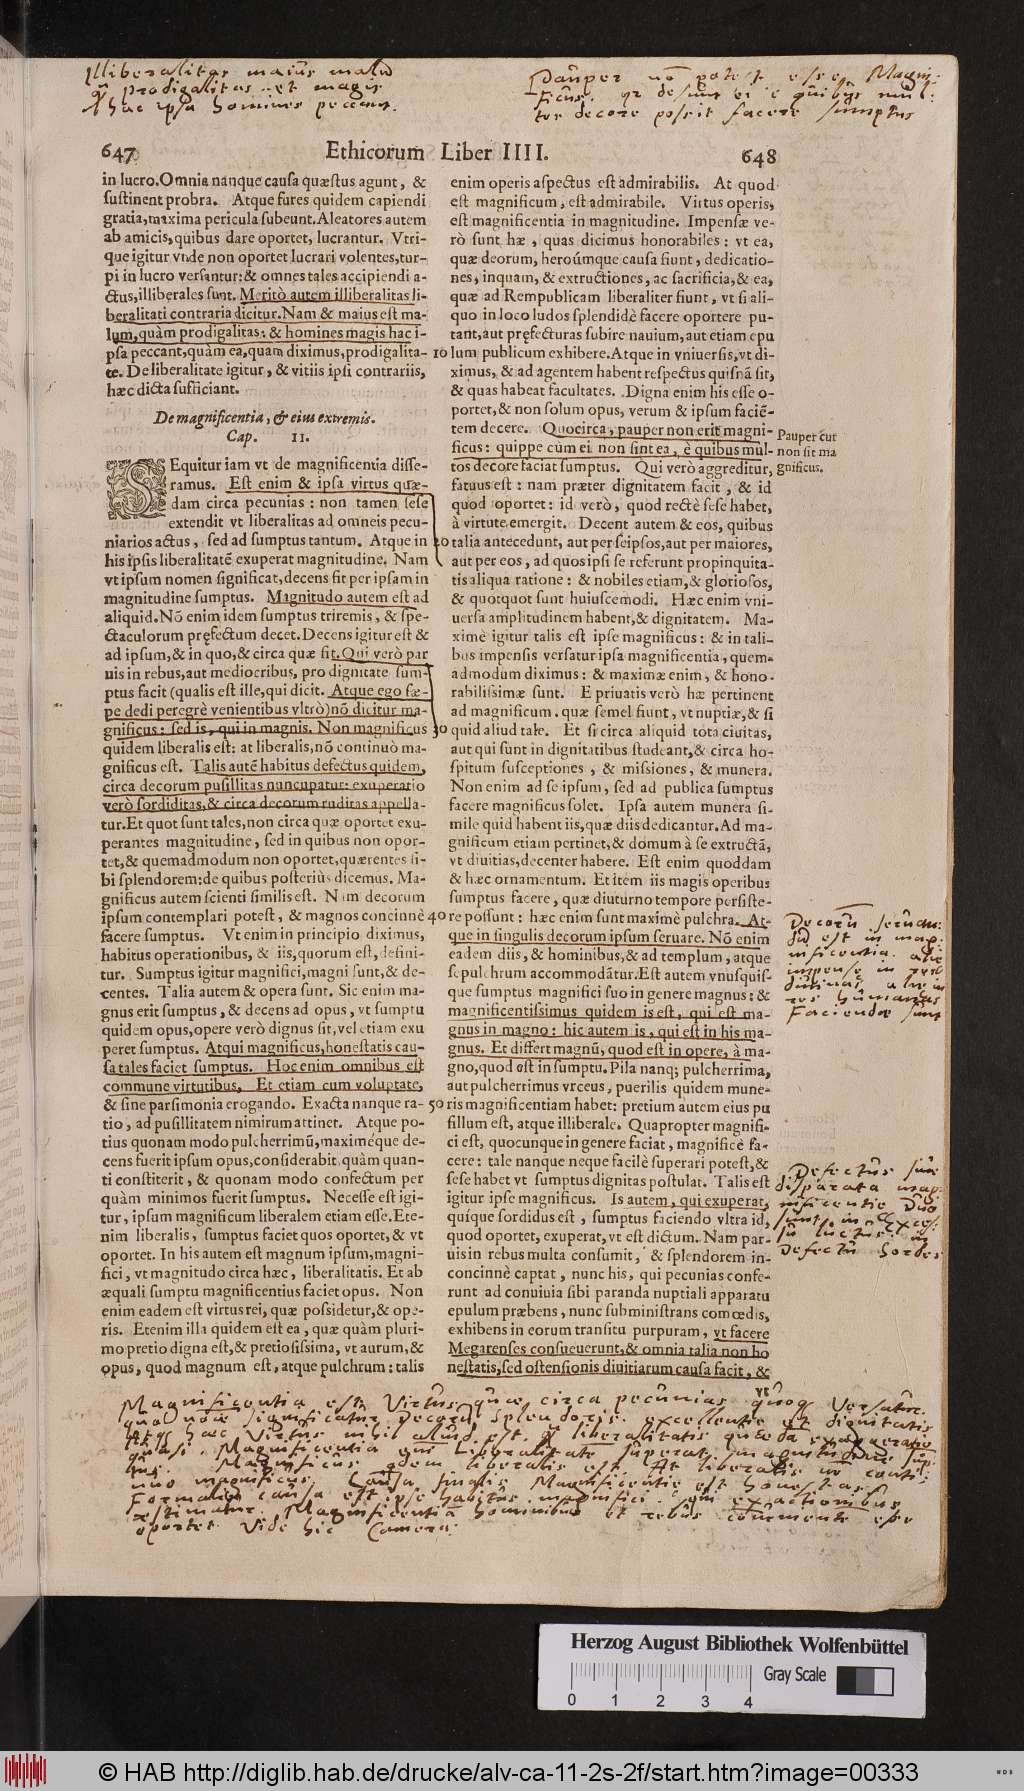 Illiberalitas maius malū
q̄ prodigalitas et magis
hac ipsa homines peccant.
Pauper nō potest esse Magni:
ficus. qr desunt ei è quibus mul:
tos decore possit facere sumptus
647 Ethicorum Liber IIII. 648
in lucro. Omnia nanque causa quæstus agunt, &
sustinent probra. Atque fures quidem capiendi
gratia, maxima pericula subeunt. Aleatores autem
ab amicis, quibus dare oportet, lucrantur. Vtri-
que igitur vnde non oportet lucrari volentes, tur-
pi in lucro versantur: & omnes tales accipiendi a-
ctus, illiberales sunt. Meritò autem illiberalitas li-
beralitati contraria dicitur. Nam & maius est ma-
lum, quàm prodigalitas: & homines magis hac i-
psa peccant, quàm ea, quam diximus, prodigalita-
te. De liberalitate igitur, & vitiis ipsi contrariis,
hæc dicta sufficiant.
De magnificentia, & eius extremis.
Cap. II.
SEquitur iam vt de magnificentia disse-
ramus. Est enim & ipsa virtus quæ-
dam circa pecunias: non tamen sese
extendit vt liberalitas ad omneis pecu-
niarios actus, sed ad sumptus tantum. Atque in
his ipsis liberalitatē exuperat magnitudine. Nam
vt ipsum nomen significat, decens fit per ipsam in
magnitudine sumptus. Magnitudo autem est ad
aliquid. Nō enim idem sumptus triremis, & spe-
ctaculorum pręfectum decet. Decens igitur est &
ad ipsum, & in quo, & circa quæ fit. Qui verò par
uis in rebus, aut mediocribus, pro dignitate sum-
ptus facit (qualis est ille, qui dicit. Atque ego sæ-
pe dedi peregrè venientibus vltrò) nō dicitur ma-
gnificus: sed is, qui in magnis. Non magnificus
quidem liberalis est: at liberalis, nō continuò ma-
gnificus est. Talis autē habitus defectus quidem,
circa decorum pusillitas nuncupatur: exuperatio
verò sordiditas, & circa decorum ruditas appella-
tur. Et quot sunt tales, non circa quæ oportet exu-
perantes magnitudine, sed in quibus non opor-
tet, & quemadmodum non oportet, quærentes si-
bi splendorem: de quibus posteriùs dicemus. Ma-
gnificus autem scienti similis est. Nam decorum
ipsum contemplari potest, & magnos concinnè
facere sumptus. Vt enim in principio diximus,
habitus operationibus, & iis, quorum est, defini-
tur. Sumptus igitur magnifici, magni sunt, & de-
centes. Talia autem & opera sunt. Sic enim ma-
gnus erit sumptus, & decens ad opus, vt sumptu
quidem opus, opere verò dignus sit, vel etiam exu
peret sumptus. Atqui magnificus, honestatis cau-
sa tales faciet sumptus. Hoc enim omnibus est
commune virtutibus. Et etiam cum voluptate,
& sine parsimonia erogando. Exacta nanque ra-
tio, ad pusillitatem nimirum attinet. Atque po-
tius quonam modo pulcherrimū, maximéque de-
cens fuerit ipsum opus, considerabit, quàm quan-
ti constiterit, & quonam modo confectum per
quàm minimos fuerit sumptus. Necesse est igi-
tur, ipsum magnificum liberalem etiam esse. Ete-
nim liberalis, sumptus faciet quos oportet, & vt
oportet. In his autem est magnum ipsum, magni-
fici, vt magnitudo circa hæc, liberalitatis. Et ab
æquali sumptu magnificentius faciet opus. Non
enim eadem est virtus rei, quæ possidetur, & ope-
ris. Etenim illa quidem est ea, quæ quàm pluri-
mo pretio digna est, & pretiosissima, vt aurum, &
opus, quod magnum est, atque pulchrum: talis
10
20
30
40
50
enim operis aspectus est admirabilis. At quod
est magnificum, est admirabile. Virtus operis,
est magnificentia in magnitudine. Impensæ ve-
rò sunt hæ, quas dicimus honorabiles: vt ea,
quæ deorum, heroúmque causa fiunt, dedicatio-
nes, inquam, & extructiones, ac sacrificia, & ea,
quæ ad Rempublicam liberaliter fiunt, vt si ali-
quo in loco ludos splendidè facere oportere pu-
tant, aut pręfecturas subire nauium, aut etiam epu
lum publicum exhibere. Atque in vniuersis, vt di-
ximus, & ad agentem habent respectus quisnā sit,
& quas habeat facultates. Digna enim his esse o-
portet, & non solum opus, verum & ipsum faciē-
tem decere. Quocirca, pauper non erit magni-
ficus: quippe cùm ei non sint ea, è quibus mul-
tos decore faciat sumptus. Qui verò aggreditur,
fatuus est: nam præter dignitatem facit, & id
quod oportet: id verò, quod rectè sese habet,
à virtute emergit. Decent autem & eos, quibus
talia antecedunt, aut per seipsos, aut per maiores,
aut per eos, ad quos ipsi se referunt propinquita-
tis aliqua ratione: & nobiles etiam, & gloriosos,
& quotquot sunt huiuscemodi. Hæc enim vni-
uersa amplitudinem habent, & dignitatem. Ma-
ximè igitur talis est ipse magnificus: & in tali-
bus impensis versatur ipsa magnificentia, quem-
admodum diximus: & maximæ enim, & hono-
rabilissimæ sunt. E priuatis verò hæ pertinent
ad magnificum. quæ semel fiunt, vt nuptiæ, & si
quid aliud tale. Et si circa aliquid tota ciuitas,
aut qui sunt in dignitatibus studeant, & circa ho-
spitum susceptiones, & missiones, & munera.
Non enim ad se ipsum, sed ad publica sumptus
facere magnificus solet. Ipsa autem munera si-
mile quid habent iis, quæ diis dedicantur. Ad ma-
gnificum etiam pertinet, & domum à se extructā,
vt diuitias, decenter habere. Est enim quoddam
& hæc ornamentum. Et item iis magis operibus
sumptus facere, quæ diuturno tempore persiste-
re possunt: hæc enim sunt maximè pulchra. At-
que in singulis decorum ipsum seruare. Nō enim
eadem diis, & hominibus, & ad templum, atque
sepulchrum accommodātur. Est autem vnusquis-
que sumptus magnifici suo in genere magnus: &
magnificentissimus quidem is est, qui est ma-
gnus in magno: hic autem is, qui est in his ma-
gnus. Et differt magnū, quod est in opere, à ma-
gno, quod est in sumptu. Pila nanq; pulcherrima,
aut pulcherrimus vrceus, puerilis quidem mune-
ris magnificentiam habet: pretium autem eius pu
sillum est, atque illiberale. Quapropter magnifi-
ci est, quocunque in genere faciat, magnificè fa-
cere: tale nanque neque facilè superari potest, &
sese habet vt sumptus dignitas postulat. Talis est
igitur ipse magnificus. Is autem, qui exuperat,
quíque sordidus est, sumptus faciendo vltra id,
quod oportet, exuperat, vt est dictum. Nam par-
uis in rebus multa consumit, & splendorem in-
concinnè captat, nunc his, qui pecunias confe-
runt ad conuiuia sibi paranda nuptiali apparatu
epulum præbens, nunc subministrans comœdis,
exhibens in eorum transitu purpuram, vt facere
Megarenses consueuerunt, & omnia talia non ho
nestatis, sed ostensionis diuitiarum causa facit, &
vt
Pauper cur
non sit ma
gnificus.
Decorū seruan:
dū est in mag:
nificentia. aliæ
impensæ in res
diuinas, aliæ in
res humanas
Faciendæ sunt
Defectus siue
disparata mag:
nificentiæ duo
sunt, in Exces:
su luctus: in
Defectu Sordes
Magnificentia est Virtus quæ circa pecunias quoq Versatur.
quo nōīe significatur Decorū splendoris. excellentiæ et dignitatis
Atq hæc Virtus nihil aliud est q̄ liberalitatis quædā exaggeratio
quasi. Magnificentia enī Liberalitate superat magnitudine sūp:
tus. Magnificus qdem liberalis est At liberalis nō conti:
nuo magnificus. Causa finalis Magnificentiæ est honestas.
Formalis causa est ipse habitus magnifici. qui ex actionibus
æstimatur. Magnificentia hominibus et rebus conueniente esse
oportet. Vide hic Camera:
Herzog August Bibliothek Wolfenbüttel
Gray Scale
0 1 2 3 4
© HAB http://diglib.hab.de/drucke/alv-ca-11-2s-2f/start.htm?image=00333